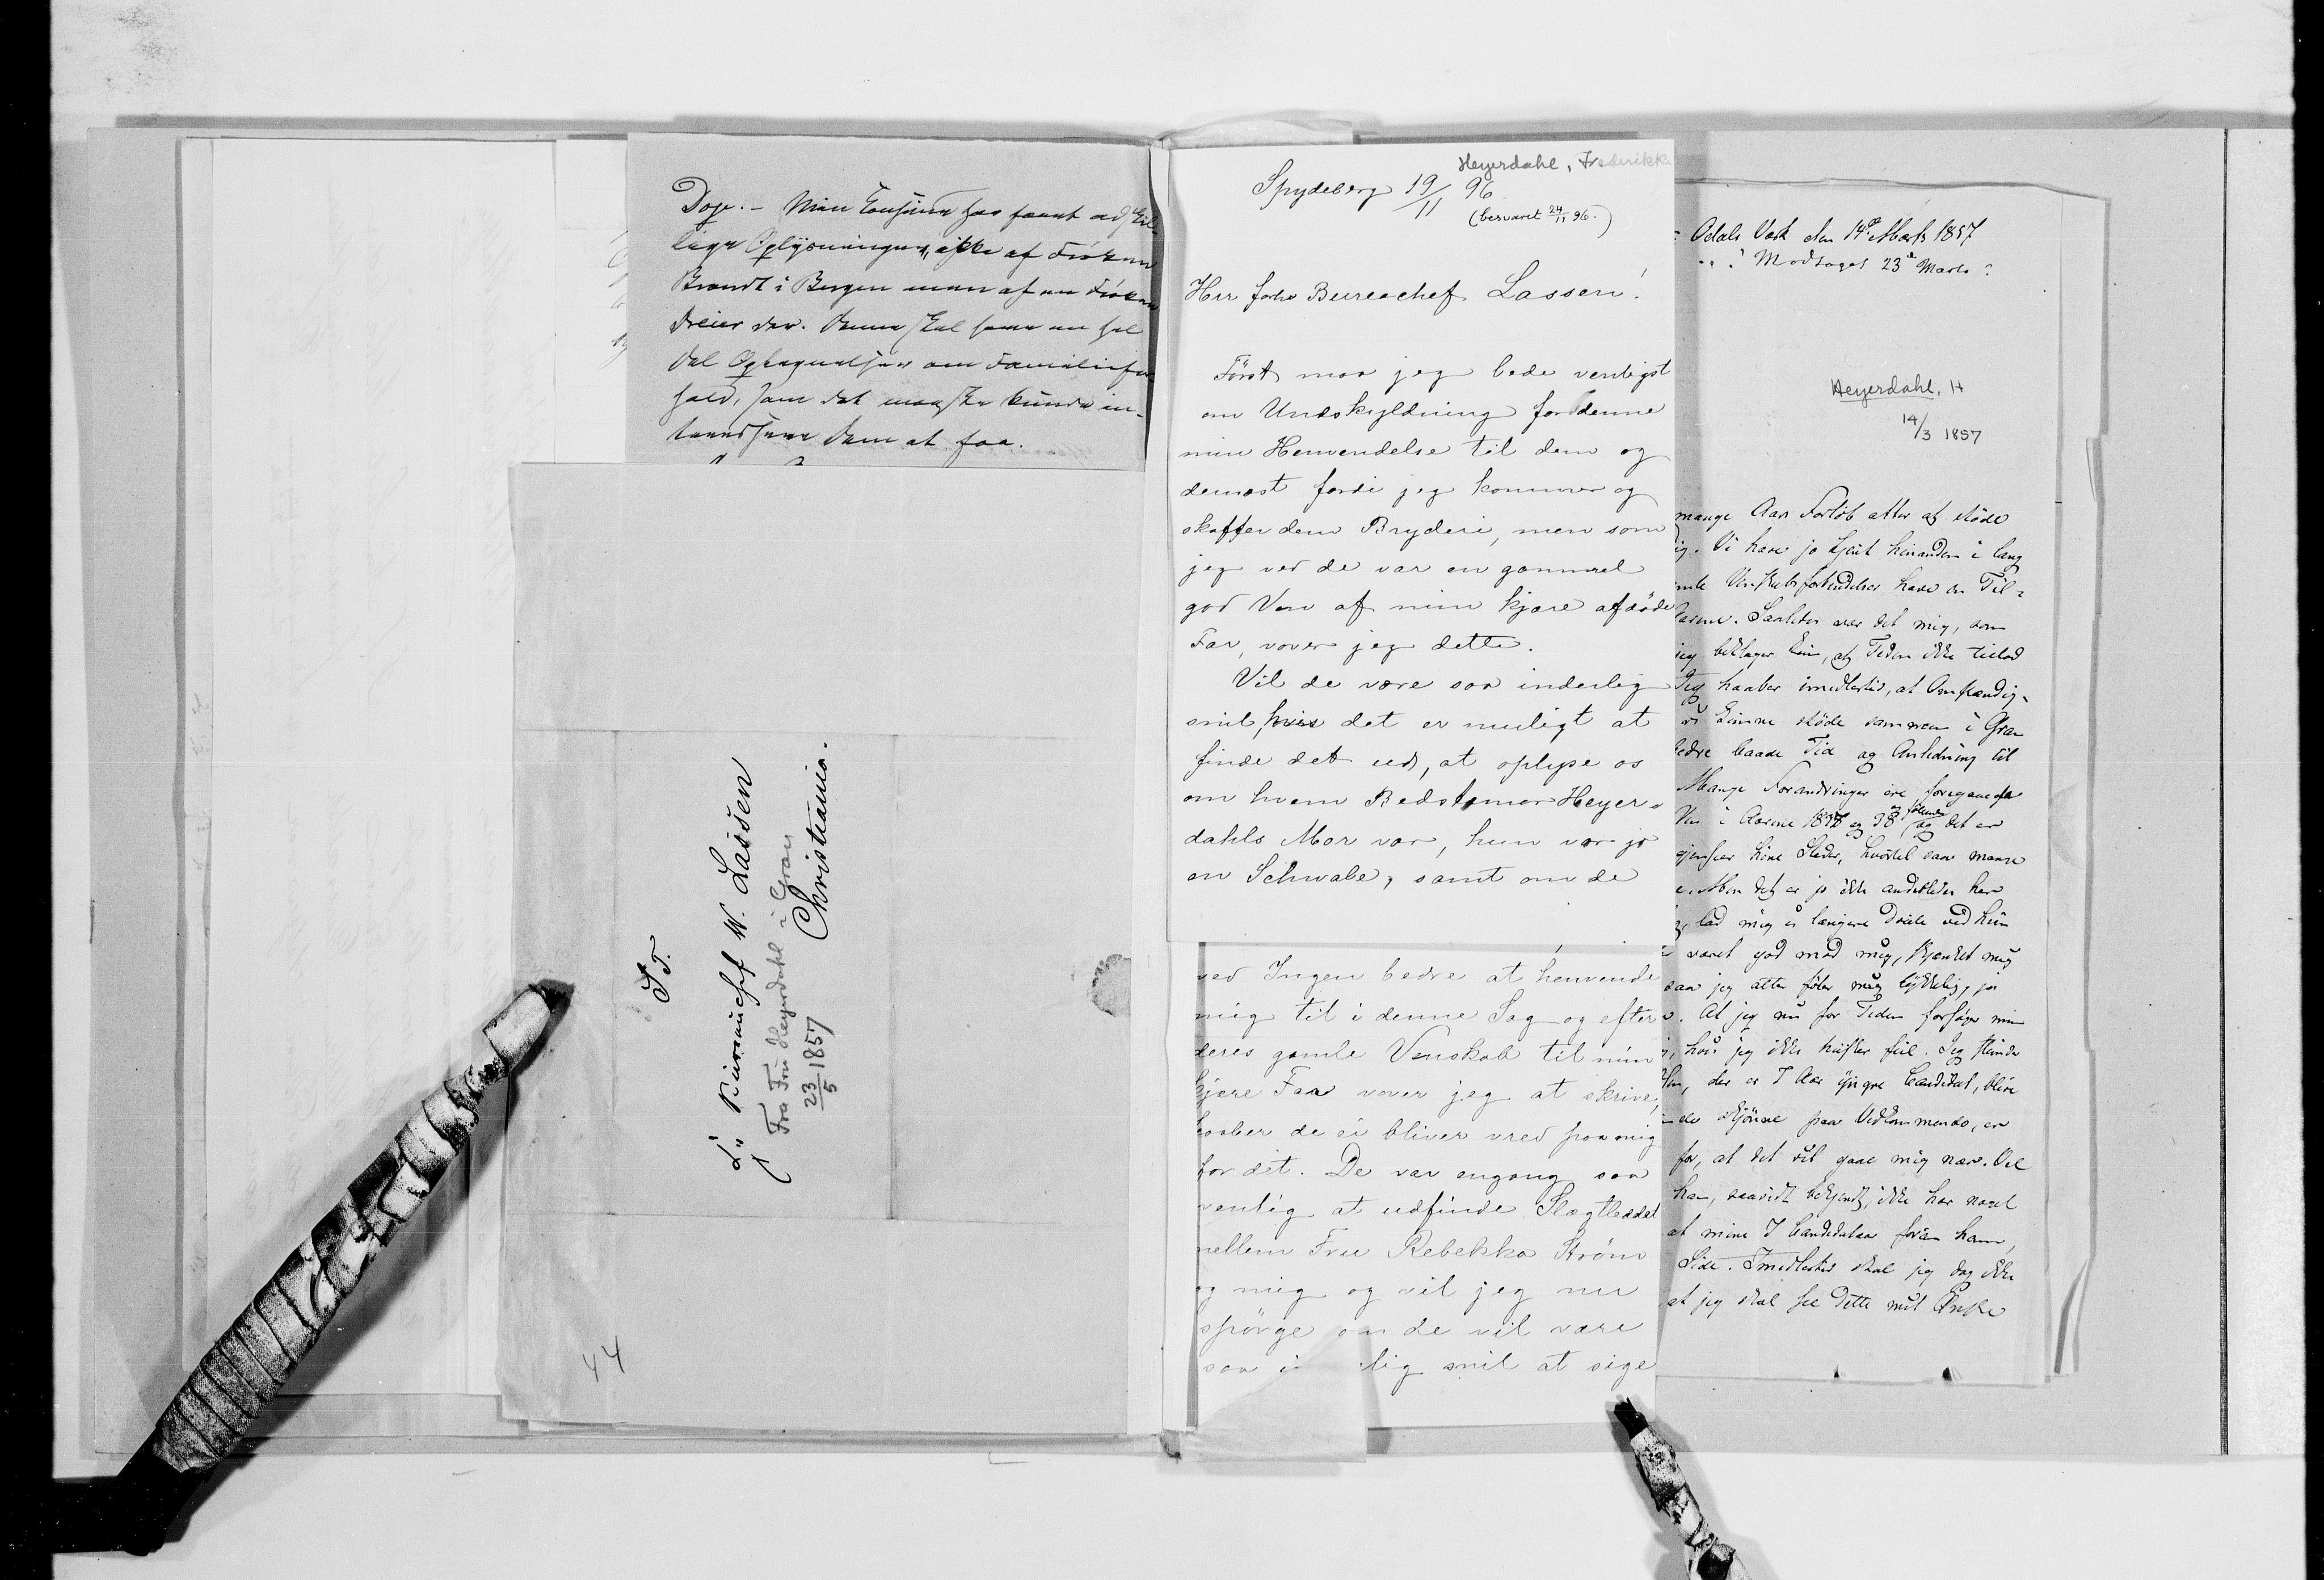 Doge. – Min Cousine har faaet adskil-
lige Oplysninger, ikke af Frøken
Brandt i Bergen men af en Frøken
Dreier der. Denne skal have en hel
Del Optegnelser om Familiefor-
hold, som det maaske kunde in-
teressere Dem at faa.
S. T.
Hr. Bureauchef W. Lassen
Christiania.
Fra Fru Heyerdahl i Gran
23/5 1857
44
Heyerdahl, Frederikke
Spydeberg 19/11 96
(besvaret 24/11 96.)
Herr forhv Bureachef Lassen!
Først maa jeg bede venligst
om Undskyldning for denne
min Henvendelse til dem og
dernæst fordi jeg kommer og
skaffer dem Bryderi, men som
jeg ved de var en gammel
god Ven af min kjære afdøde
Far, vover jeg dette.
Vil de være saa inderlig
snil, hvis det er muligt at
finde det ud, at oplyse os
om hvem Bedstemor Heyer-
dahls Mor var, hun var jo
en Schwabe, samt om de
ved Ingen bedre at henvende
mig til i denne Sag og efter
deres gamle Venskab til min
kjære Far vover jeg at skrive,
haaber de ei bliver vred paa mig
for det. De var engang saa
venlig at udfinde Slægtleddet
mellem Fru Rebekka Strøm
og mig og vil jeg nu
spørge om de vil være
saa i lig snil at sige
Odals Værk den 14de Marts 1857
Modtaget 23de Marts
Heyerdahl, H
14/3 1857
mange Aars Forløb atter at støde
ig. Vi have jo kjent hinanden i lang
mle Venskabsforbindelser have en Til-
Saaledes var det mig, som
jeg beklager kun, at Tiden ikke tillod
Jeg haaber imidlertid, at Omstændig-
vi kunne støde sammen i Gran
bedre baade Tid og Anledning til
Mange Forandringer ere foregaaede
i Aarene 1837 og 38 og det er
gjenseer hine Steder, hvortil saa mange
Men det er jo ikke anderledes her
lad mig ei længere dvæle ved hiin
været god mod mig, skjænket mig
saa jeg atter føler mig lykkelig, ja
At jeg nu for Tiden forsøger min
jeg ikke feil. Jeg
der er 7 Aar yngre Candidat, blive
skjønne paa Vedkommende, en
for, at det vil gaae mig nær. Vel
han, saavidt bekjendt, ikke har noget
at mine 7 Candidataar foran ham,
Side. Imidlertid skal jeg dog ikke
at jeg skal see dette mit Ønske